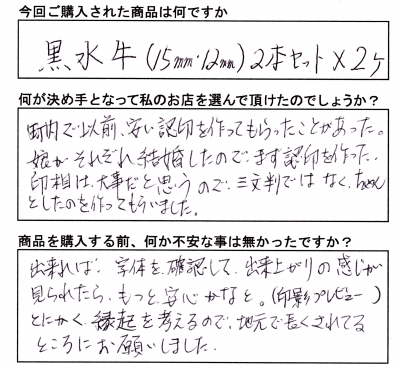 今回ご購入された商品は何ですか
黒水牛(15mm・12mm)2本セット×2ケ
何が決め手となって私のお店を選んで頂けたのでしょうか?
町内で以前、安い認印を作ってもらったことがあった。
娘がそれぞれ結婚したので、まず認印を作った。
印相は、大事だと思うので、三文判ではなく、ちゃん
としたのを作ってもらいました。
商品を購入する前、何か不安な事は無かったですか?
出来れば、字体を、確認して、出来上がりの感じが
見られたら、もっと、安心かなと。(印影プレビュー)
とにかく、縁起を考えるので、地元で長くされてる
ところにお願いしました。